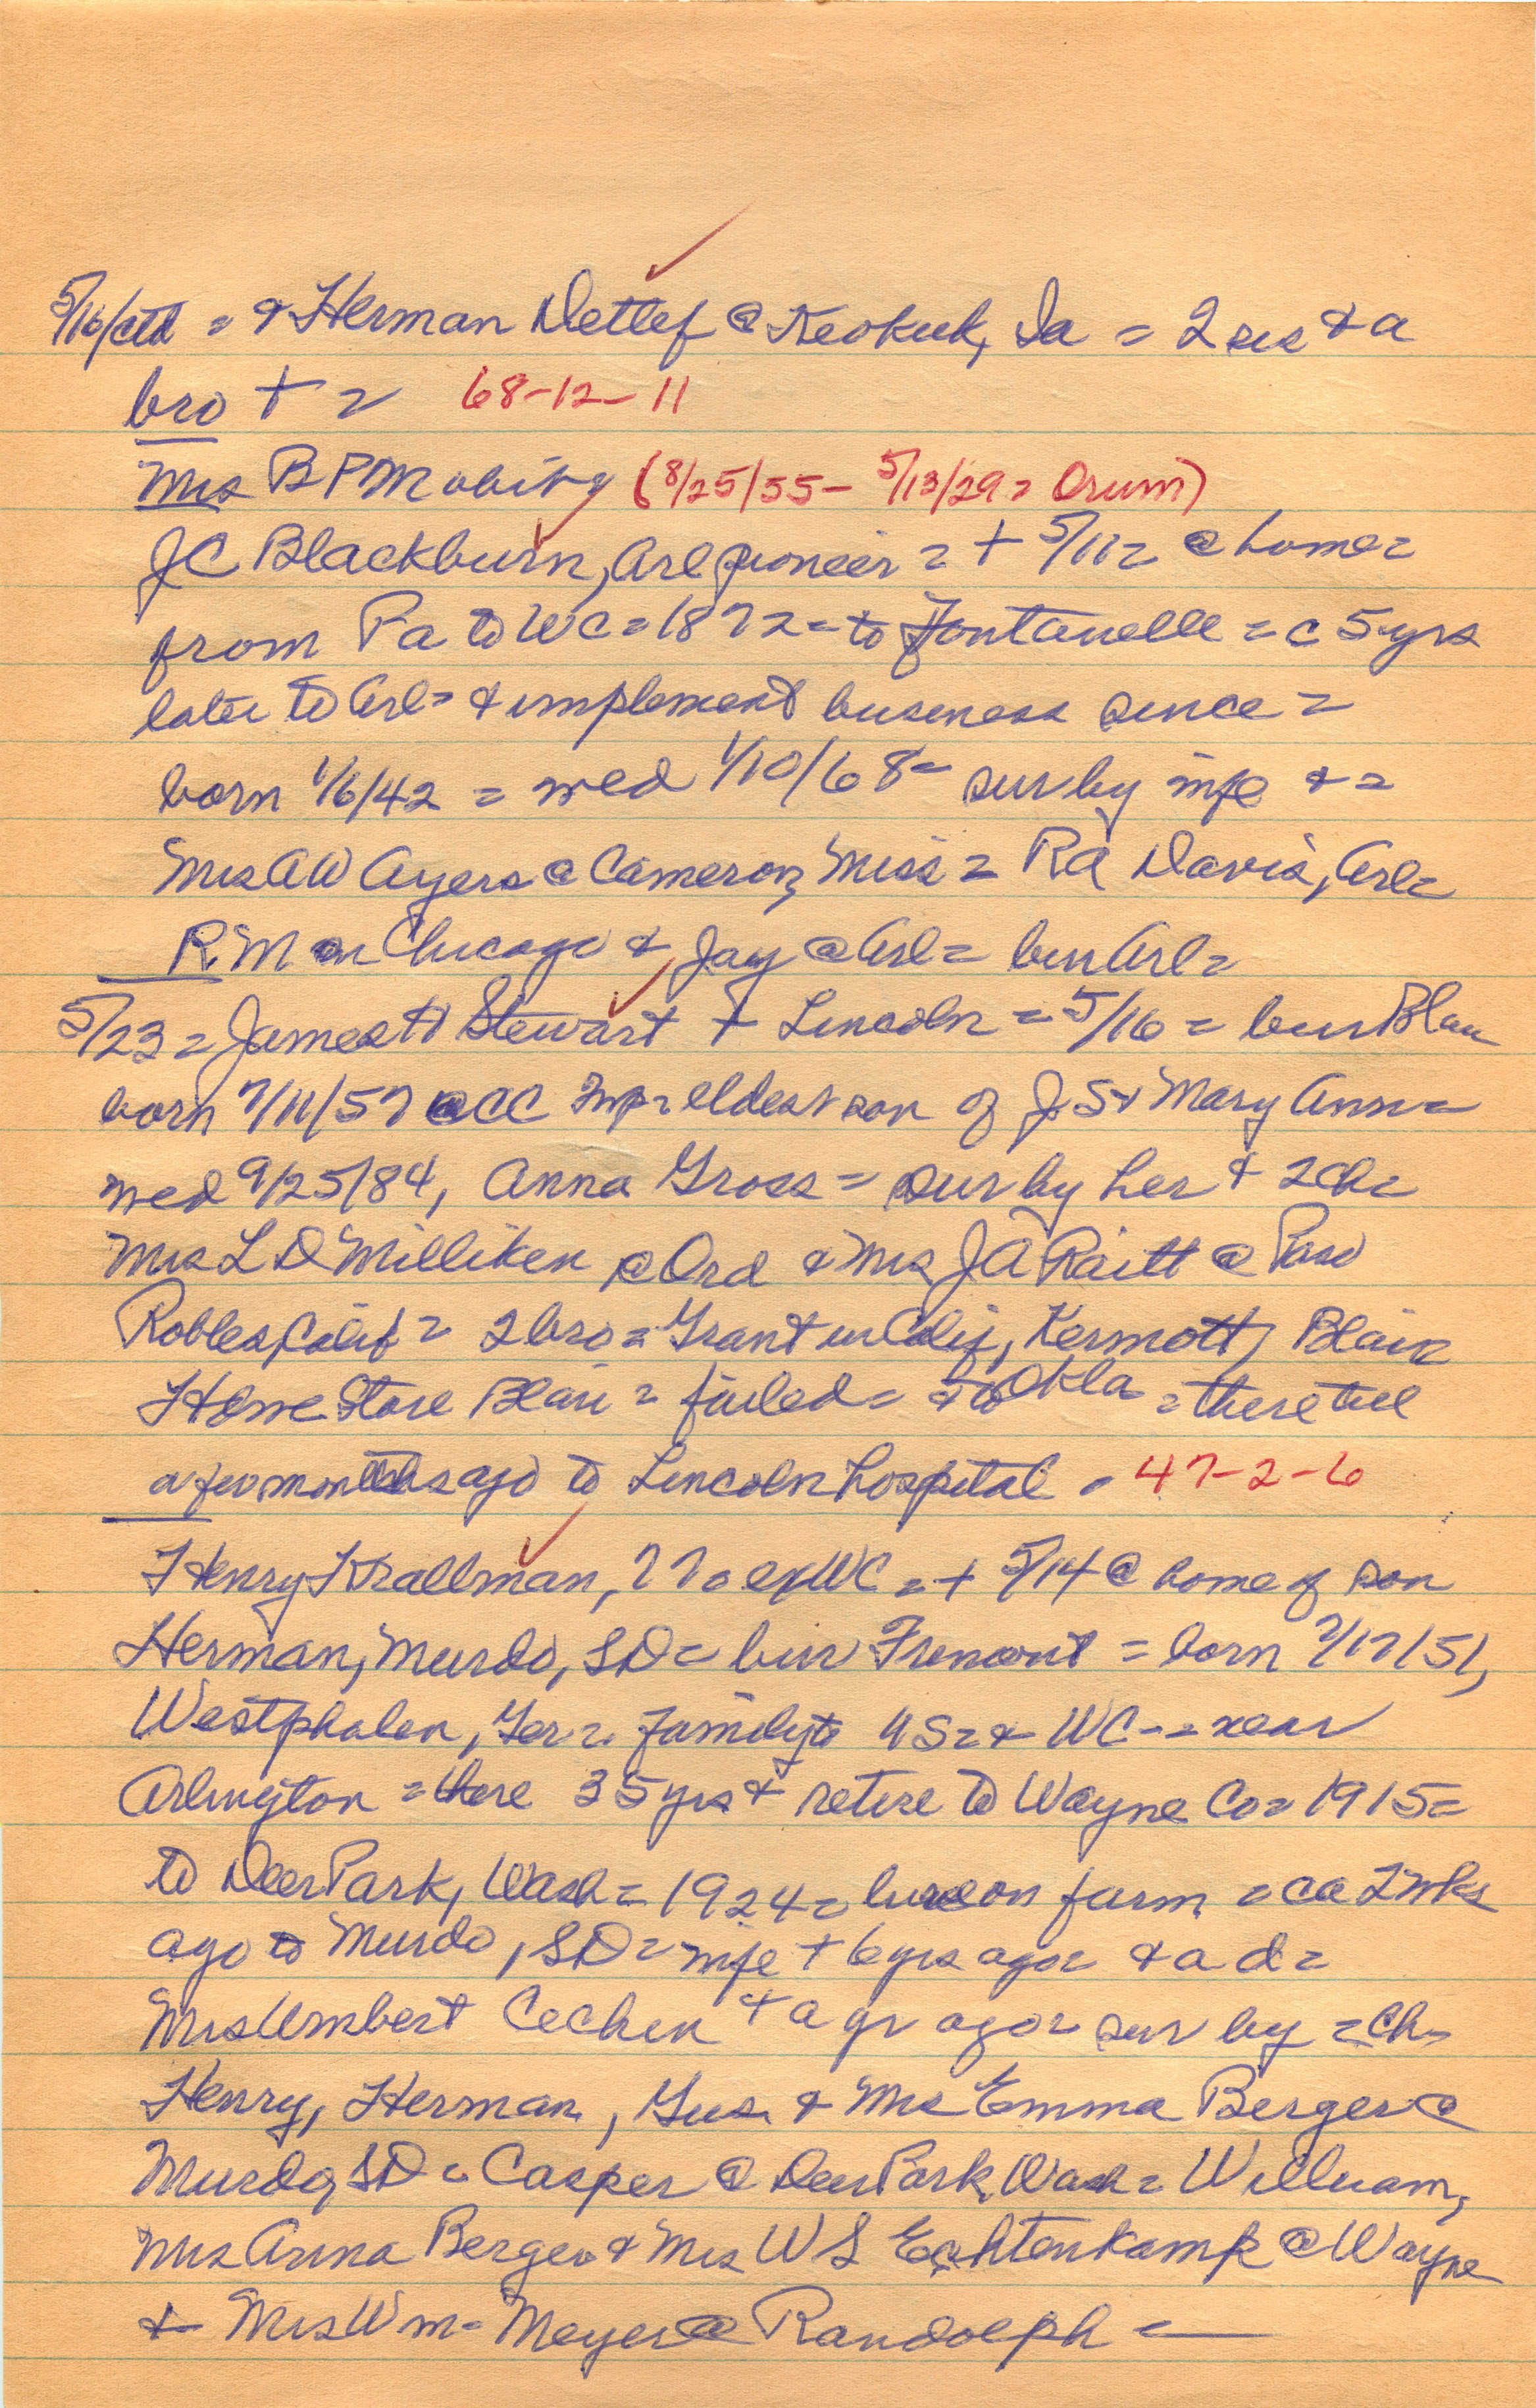 5/16/ctd = & Herman Detlef @ Keokuk, Ia = 2 sis & a
bro + = 68-12-11
Mrs B P M obit = (8/25/55 - 5/13/29 = Orum)
J C Blackburn, Arl pioneer = + 5/11 = @ home =
from Pa to WC = 1872 = to Fontanelle = c 5 yrs
later to Arl = & implement business since =
born 1/6/42 = wed 1/10/68 = sur by wife & =
Mrs A W Ayers @ Cameron, Miss = R A Davis, Arl =
R.M in Chicago & Jay @ Arl = bur Arl =
5/23 = James H Stewart + Lincoln = 5/16 = bur Blair
born 7/11/57 @ CC Twp = eldest son of J.S & Mary Ann =
wed 9/25/84, Anna Gross = sur by her & 2 ch =
Mrs L D Milliken @ Ord & Mrs J A Raitt @ Paso
Robles, Calif = 2 bro = Grant in Calif, Kermott, Blair
Home Store Blair = failed = & to Okla = there till
a few months ago to Lincoln hospital = 47-2-6
Henry Krallman, 77 = ex WC = + 5/14 @ home of son
Herman, Murdo, SD = bur Fremont = born 7/17/51,
Westphalen, Ger = family to US = & WC -= near
Arlington = there 35 yrs & retire to Wayne Co = 1915 =
to Deer Park, Wash = 1924 = live on farm = ca 2 wks
ago to Murdo, SD = wife + 6 yrs ago = & a d =
Mrs Umbert & a yr ago = sur by = ch =
Henry, Herman, Gus. & Mrs Emma Berger @
Murdo, SD = Casper @ Deer Park, Wash = William,
Mrs Anna Berger & Mrs W S Echtenkamp @ Wayne
& Mrs Wm = Meyer @ Randolph =